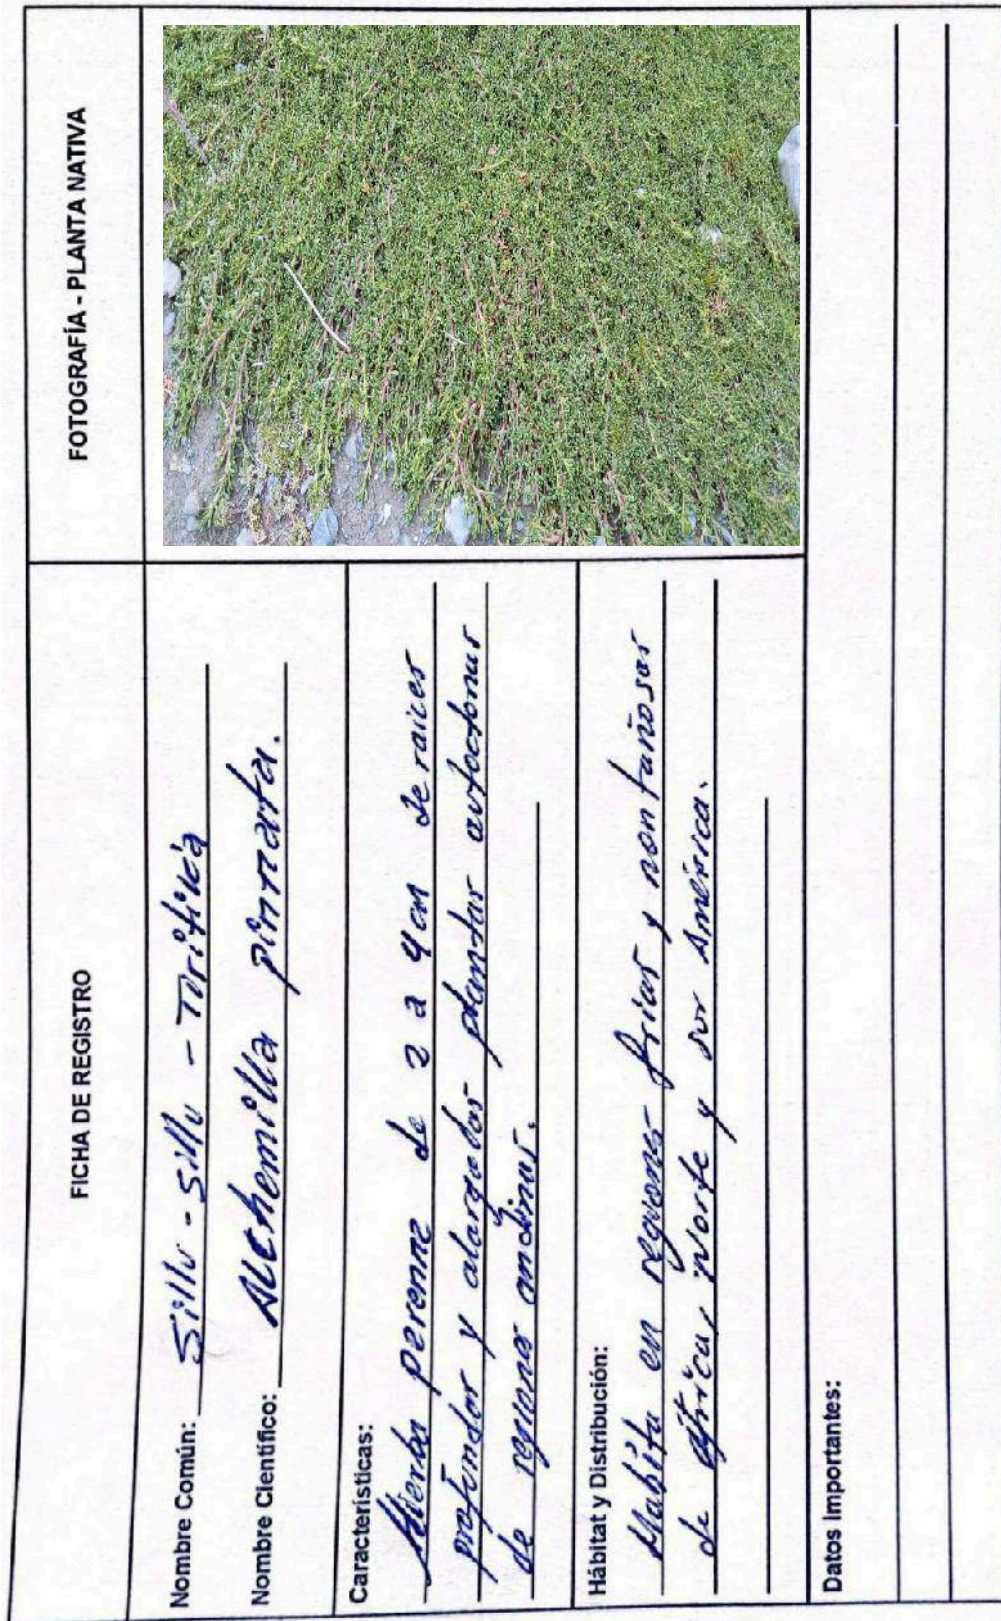 FICHA DE REGISTRO
FOTOGRAFÍA - PLANTA NATIVA
Nombre Común: Sillu - sillu -
Nombre Científico: Alchemilla pinnata.
Características:
Hierba perenne de 2 a 4 cm de raices
profundas y alargadas plantas autoctonas
de regiones andinas.
Hábitat y Distribución:
Habita en regiones frias y montañosas
de africa, norte y sur America.
Datos Importantes: